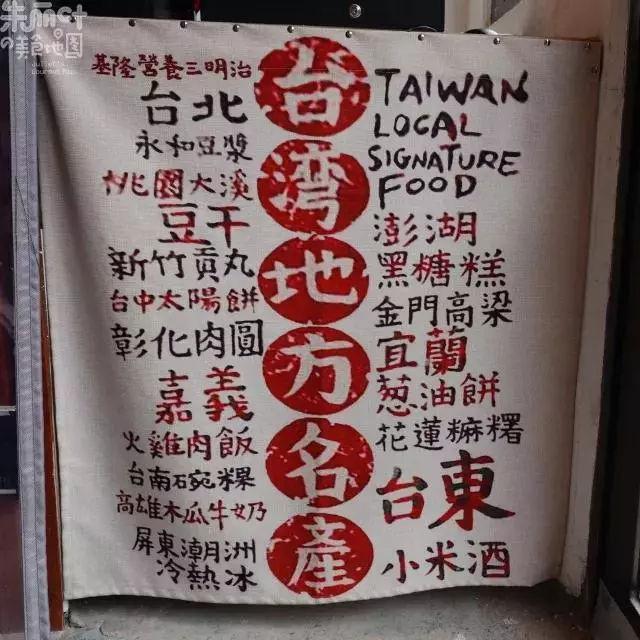 朱丽叶
の美食地图
Juliet's
Gourmet Map
台灣地方名產
TAIWAN
LOCAL
SIGNATURE
FOOD
基隆營養三明治
台北
永和豆漿
桃園大溪
豆干
新竹貢丸
台中太陽餅
彰化肉圓
嘉義
火雞肉飯
台南碗粿
高雄木瓜牛奶
屏東潮洲
冷熱冰
澎湖
黑糖糕
金門高梁
宜蘭
葱油餅
花蓮麻糬
台東
小米酒